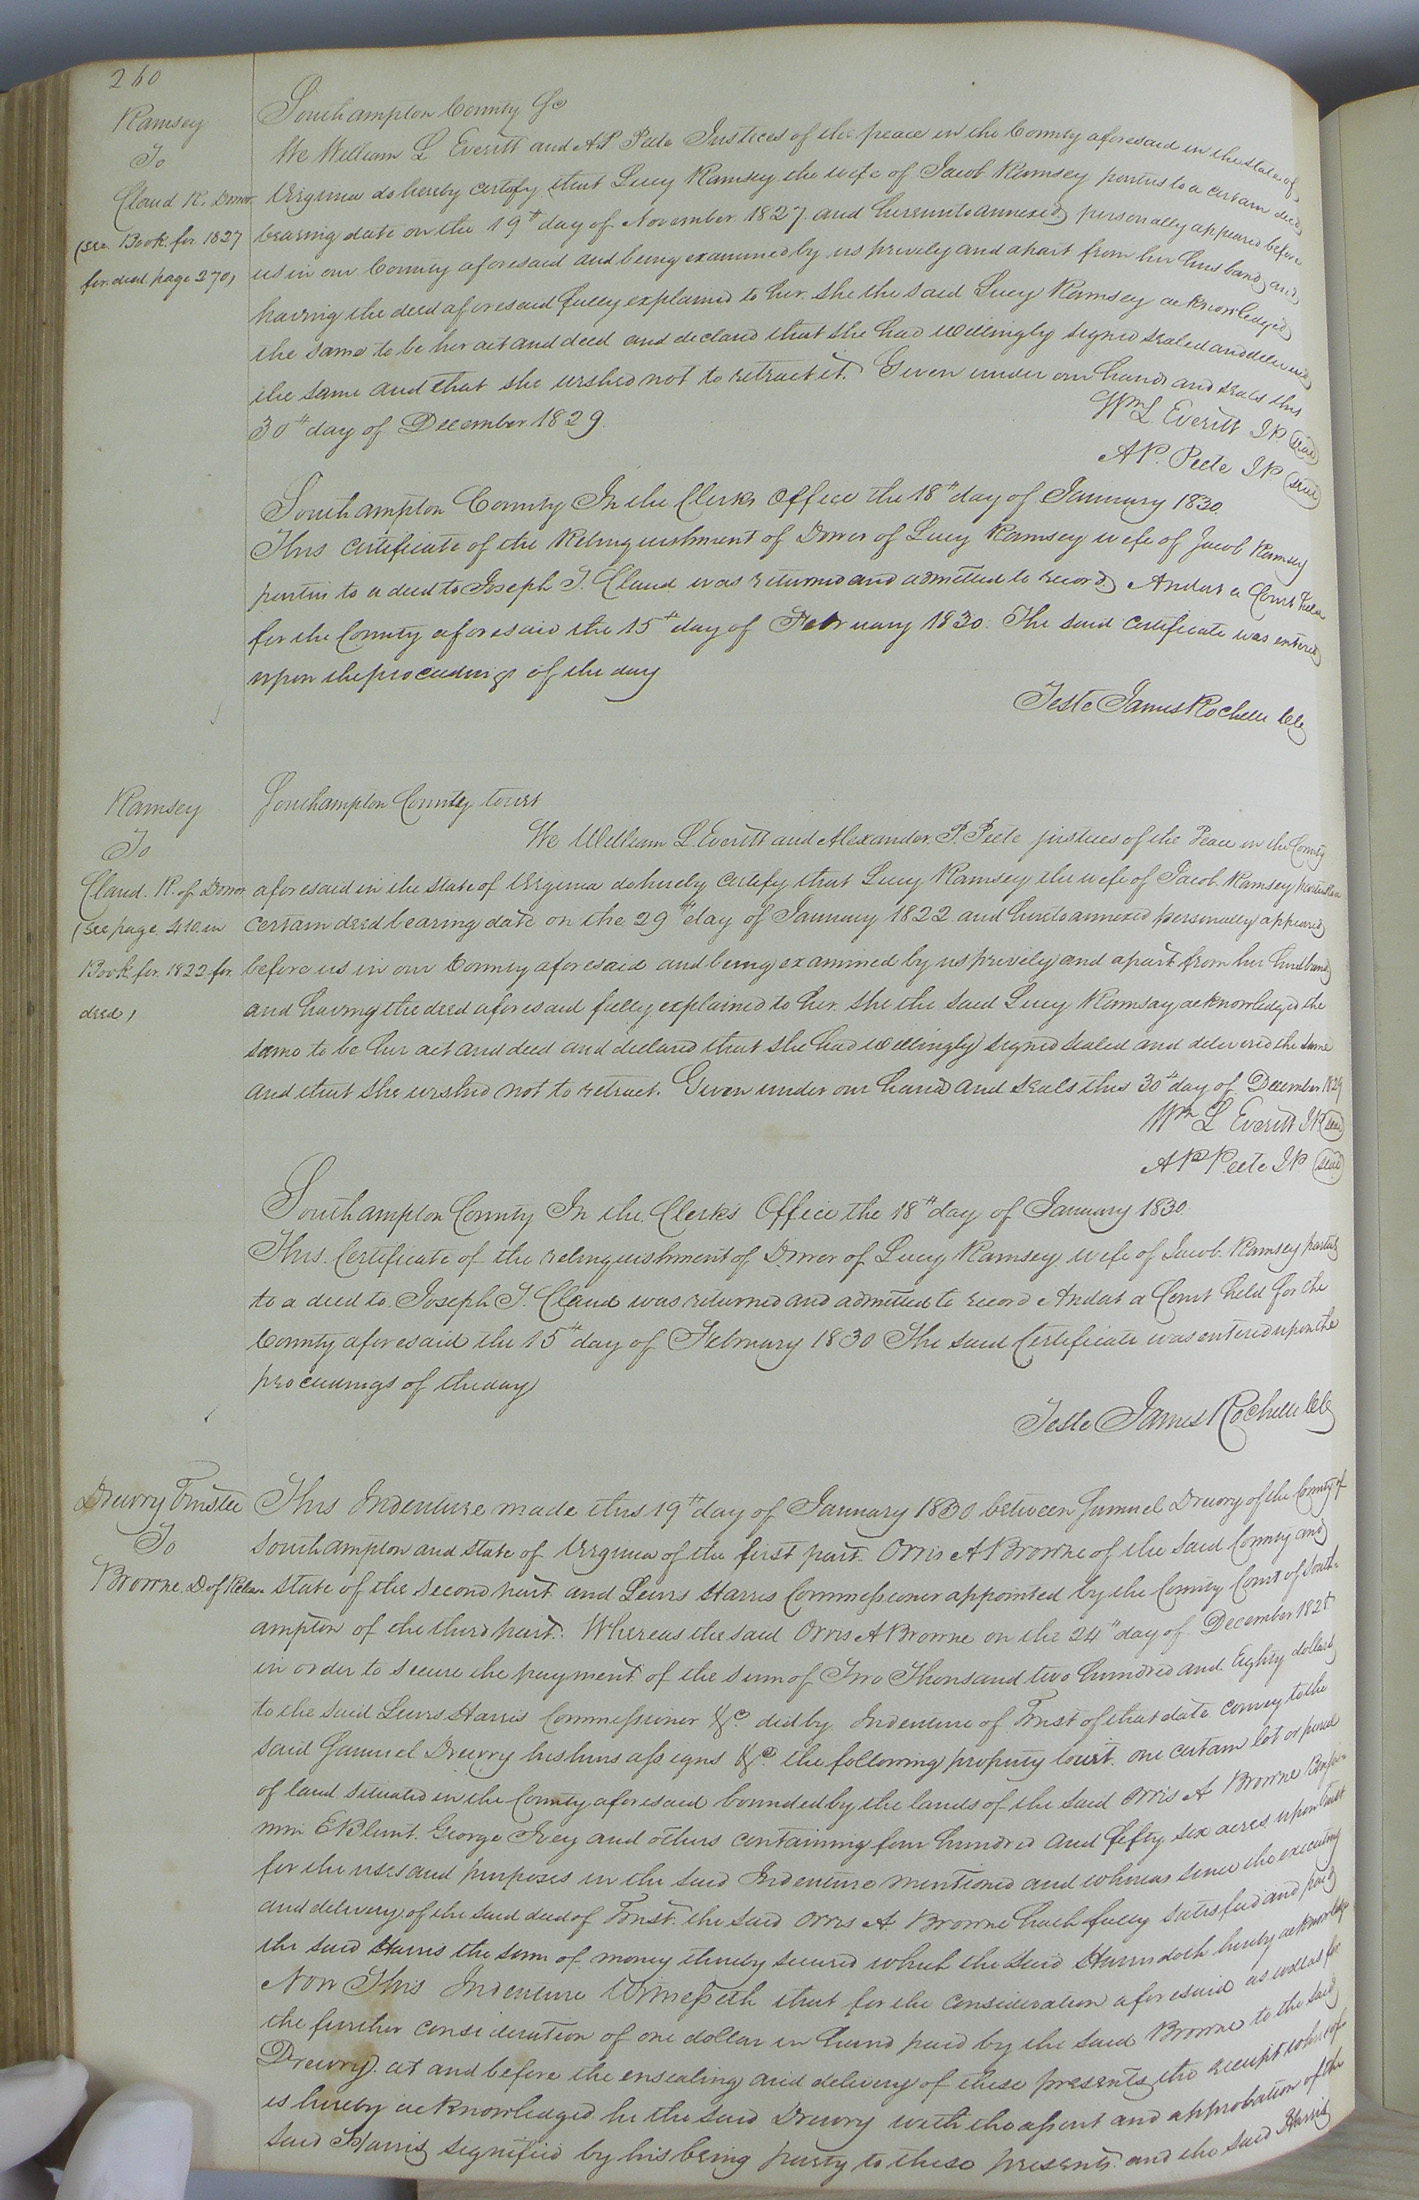 260
Ramsey
To
Claud R. Dower
(see Book for 1827
for deed page 270)
Southampton County &c
We William L Everitt and A P Peete Justices of the peace in the County aforesaid in the State of
Virginia do hereby certify that Lucy Ramsey the wife of Jacob Ramsey parties to a certain deed
bearing date on the 19th day of November 1827 and hereunto annexed personally appeared before
us in our County aforesaid and being examined by us privily and apart from her husband and
having the deed aforesaid fully explained to her she the said Lucy Ramsey acknowledged
the same to be her act and deed and declared that she had willingly signed sealed and delivered
the same and that she wished not to retract it. Given under our hands and seals this
30th day of December 1829.
Wm L. Everitt J.P. (seal)
A.P. Peete J P (seal)
Southampton County In the Clerks Office the 18th day of January 1830
This certificate of the Relinquishment of Dower of Lucy Ramsey wife of Jacob Ramsey
parties to a deed to Joseph T. Claud was returned and admitted to record And at a Court held
for the County aforesaid the 15th day of February 1830. The said certificate was entered
upon the proceedings of the day
Teste James Rochelle Clk
Ramsey
To
Claud. R. of Dower
(see page 410 in
Book for 1822 for
deed)
Southampton County towit
We William L. Everitt and Alexander P. Peete justices of the Peace in the County
aforesaid in the state of Virginia do hereby certify that Lucy Ramsey the wife of Jacob Ramsey parties to a
certain deed bearing date on the 29th day of January 1822 and hereto annexed personally appeared
before us in our County aforesaid and being examined by us privily and apart from her husband
and having the deed aforesaid fully explained to her she the said Lucy Ramsay acknowledged the
same to be her act and deed and declared that she had willingly signed sealed and delivered the same
and that she wished not to retract. Given under our hands and seals this 30th day of December 1829
Wm L Everitt J P (seal)
A P Peete J P (seal)
Southampton County In the Clerk's Office the 18th day of January 1830.
This Certificate of the relinquishment of Dower of Lucy Ramsey wife of Jacob Ramsey parties
to a deed to Joseph T. Claud was returned and admitted to record And at a Court held for the
County aforesaid the 15th day of February 1830 The said Certificate was entered upon the
proceedings of the day
Teste James Rochelle Clk
Drewry Trustee
To
Browne D of Release
This Indenture made this 19th day of January 1830 between Samuel Drewry of the County of
Southampton and state of Virginia of the first part Orris A Browne of the said County and
state of the second part and Lewis Harris Commissioner appointed by the County Court of South-
ampton of the third part. Whereas the said Orris A Browne on the 24th day of December 1825
in order to secure the payment of the sum of Two Thousand two hundred and Eighty dollars
to the said Lewis Harris Commissioner &c. did by Indenture of Trust of that date convey to the
said Samuel Drewry his heirs assigns &c. the following property towit. one certain lot or parcel
of land situated in the County aforesaid bounded by the lands of the said Orris A Browne Benja-
min E Blunt George Ivey and others containing four hundred and fifty six acres upon trust
for the uses and purposes in the said Indenture mentioned and whereas since the executing
and delivery of the said deed of Trust the said Orris A. Browne hath fully satisfied and paid
the said Harris the sum of money thereby secured which the said Harris doth hereby acknowledge
Now This Indenture Witnesseth that for the consideration aforesaid as well as for
the further consideration of one dollar in hand paid by the said Browne to the said
Drewry at and before the ensealing and delivery of these presents the receipt whereof
is hereby acknowledged he the said Drewry with the assent and approbation of the
said Harris signified by his being party to these presents and the said Harris